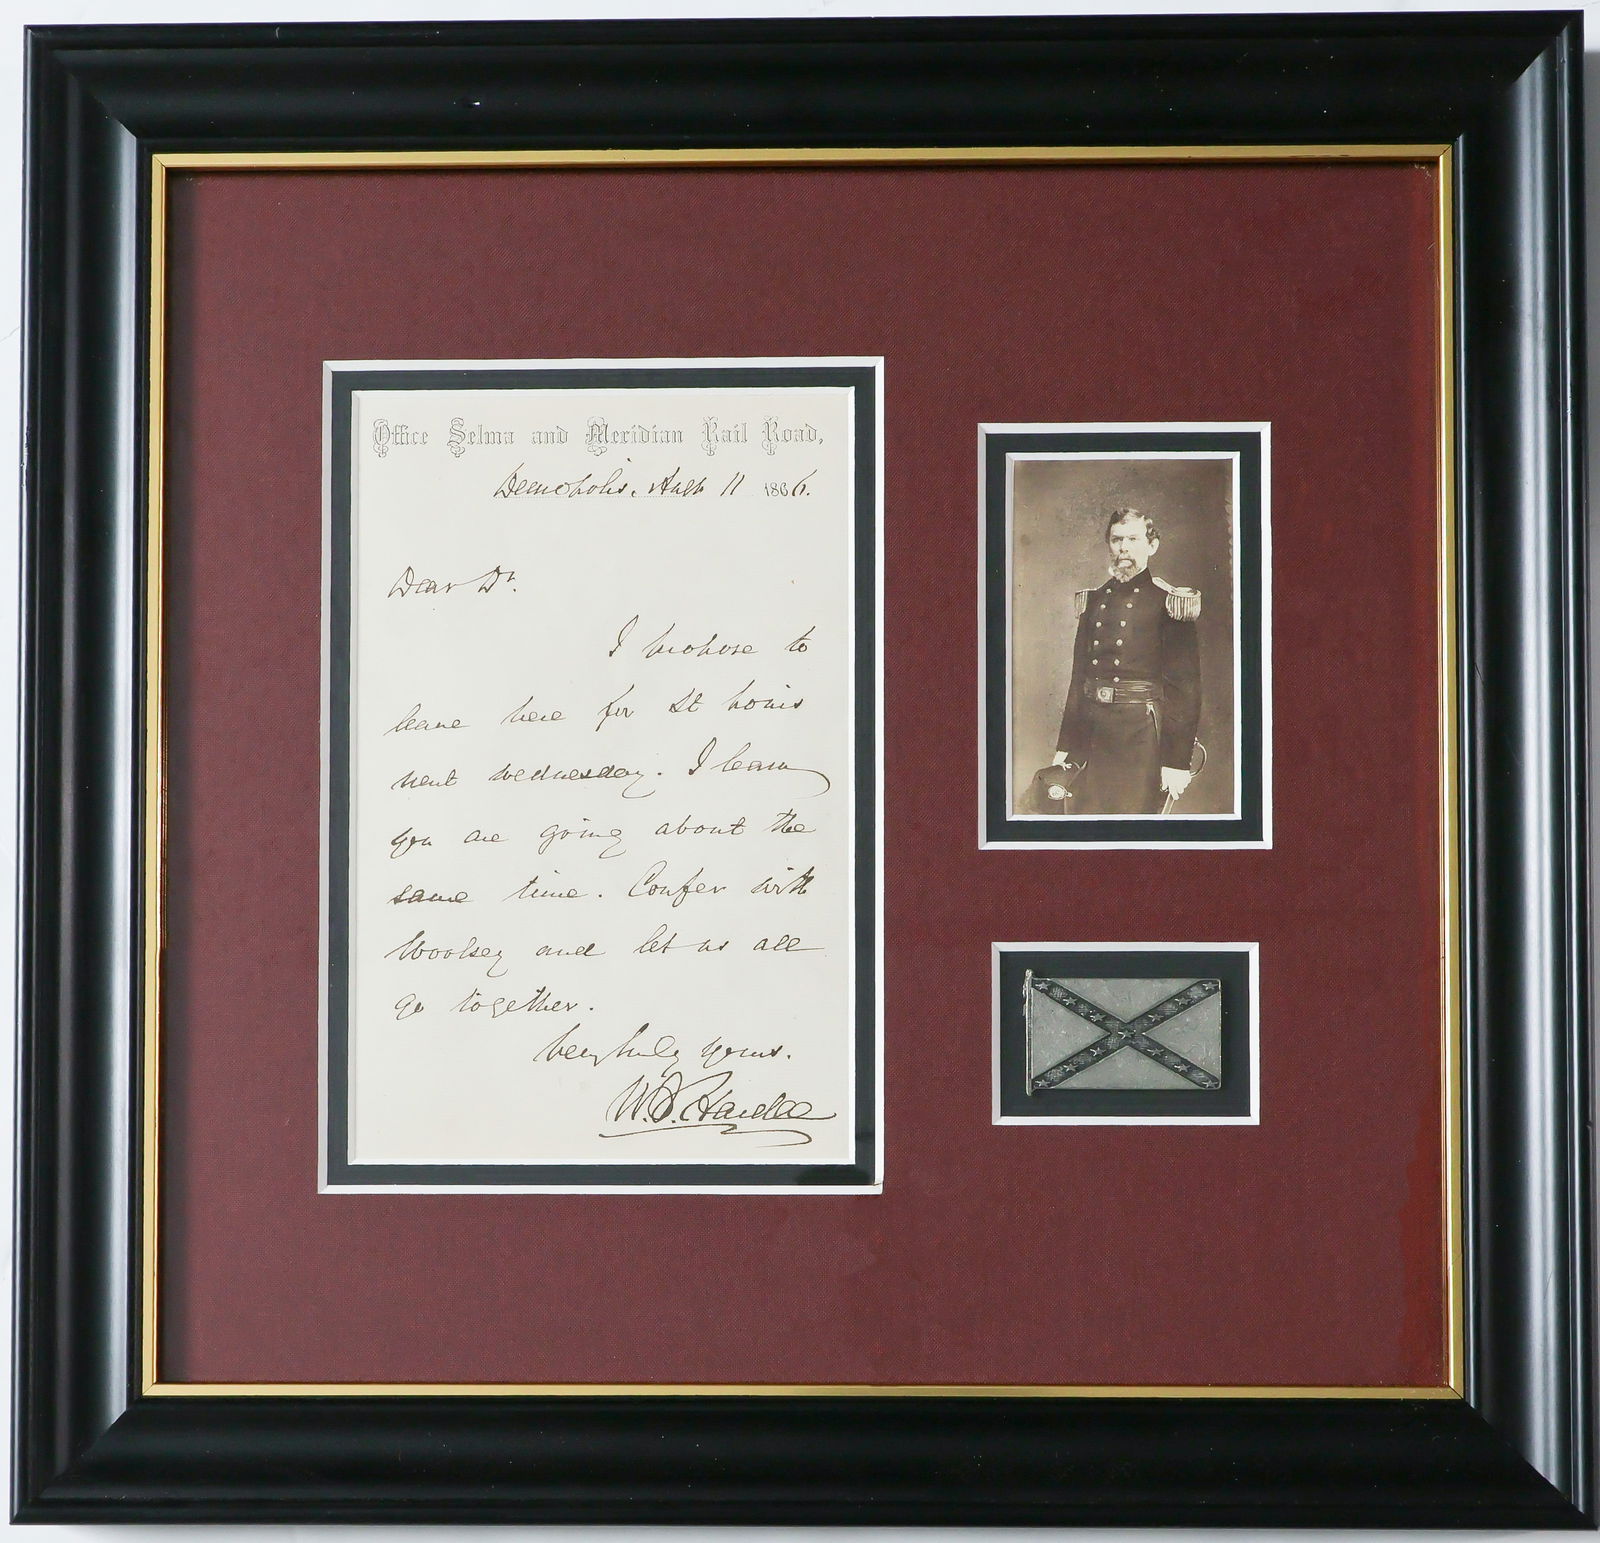 Office Selma and Meridian Rail Road,
Demopolis, Aug 11 1866.
Dear Dr.
I propose to
leave here for St Louis
next wednesday. I learn
you are going about the
same time. Confer with
Woolsey and let us all
go together.
Very truly yours.
W. J. Hardee